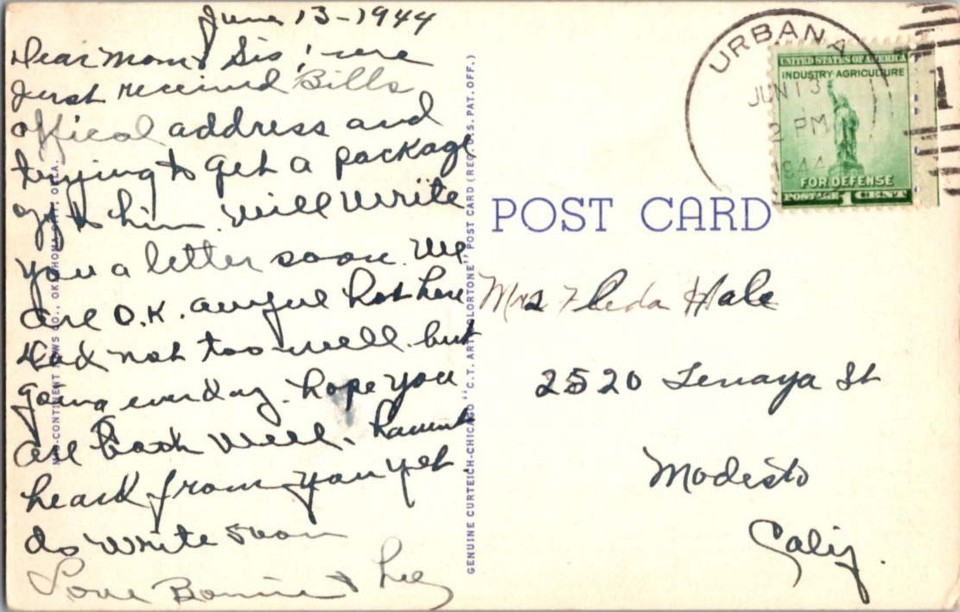 June 13-1944
Dear Mom & Sis, we
just received Bills
offical address and
trying to get a package
to him. Will write
you a letter soon. We
are O.K. awful hot here
Dad not too well but
going everday. hope you
are both well. havent
heard from you yet.
do write soon
Love Bonnie &
MID-CONTINENT NEWS CO., OKLAHOMA CITY, OKLA.
GENUINE CURTEICH-CHICAGO "C.T. ART-COLORTONE" POST CARD (REG. U.S. PAT. OFF.)
URBANA
JUN 13
2 PM
1944
1
UNITED STATES OF AMERICA
INDUSTRY AGRICULTURE
FOR DEFENSE
POSTAGE 1 CENT
POST CARD
Mrs Fleda Hale
2520 Tenaya St
Modesto
Calif.